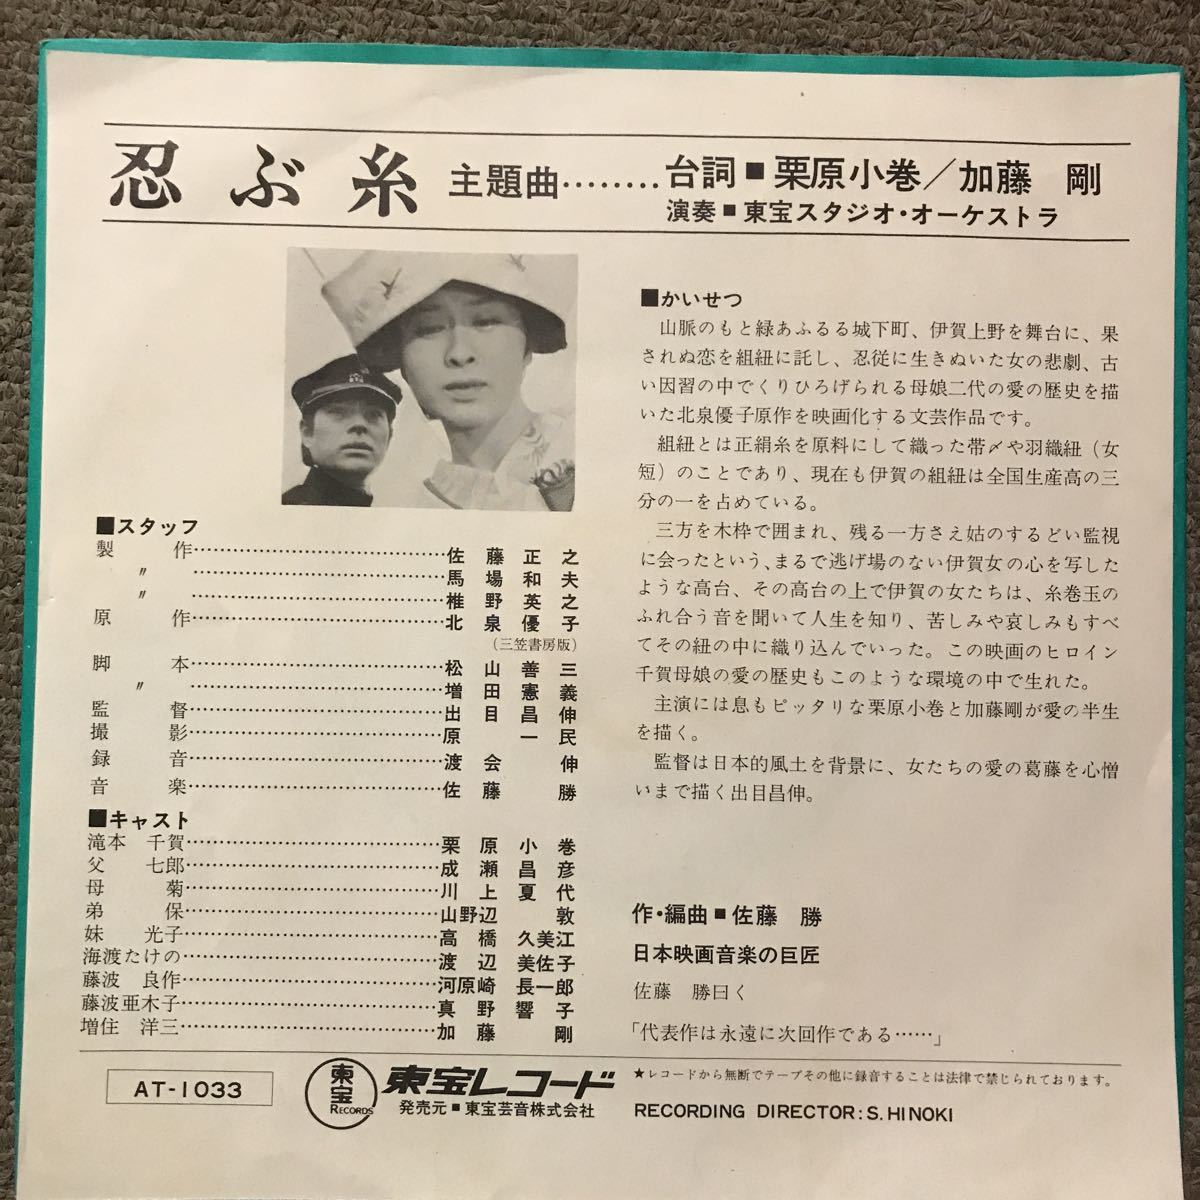 忍ぶ糸 主題曲‥‥‥‥台詞■栗原小巻／加藤 剛
演奏■東宝スタジオ・オーケストラ
■スタッフ
製作‥‥‥‥佐藤正之
〃‥‥‥‥馬場和夫
〃‥‥‥‥椎野英之
原作‥‥‥‥北泉優子
（三笠書房版）
脚本‥‥‥‥松山善三
〃‥‥‥‥増田憲義
監督‥‥‥‥出目昌伸
撮影‥‥‥‥原一民
録音‥‥‥‥渡会伸
音楽‥‥‥‥佐藤勝
■キャスト
滝本 千賀‥‥‥‥栗原小巻
父 七郎‥‥‥‥成瀬昌彦
母 菊‥‥‥‥川上夏代
弟 保‥‥‥‥山野辺 敦
妹 光子‥‥‥‥高橋 久美江
海渡たけの‥‥‥‥渡辺 美佐子
藤波 良作‥‥‥‥河原崎 長一郎
藤波亜木子‥‥‥‥真野響子
増住 洋三‥‥‥‥加藤 剛
■かいせつ
山脈のもと緑あふるる城下町、伊賀上野を舞台に、果
されぬ恋を組紐に託し、忍従に生きぬいた女の悲劇、古
い因習の中でくりひろげられる母娘二代の愛の歴史を描
いた北泉優子原作を映画化する文芸作品です。
組紐とは正絹糸を原料にして織った帯〆や羽織紐（女
短）のことであり、現在も伊賀の組紐は全国生産高の三
分の一を占めている。
三方を木枠で囲まれ、残る一方さえ姑のするどい監視
に会ったという、まるで逃げ場のない伊賀女の心を写した
ような高台、その高台の上で伊賀の女たちは、糸巻玉の
ふれ合う音を聞いて人生を知り、苦しみや哀しみもすべ
てその紐の中に織り込んでいった。この映画のヒロイン
千賀母娘の愛の歴史もこのような環境の中で生れた。
主演には息もピッタリな栗原小巻と加藤剛が愛の半生
を描く。
監督は日本的風土を背景に、女たちの愛の葛藤を心憎
いまで描く出目昌伸。
作・編曲■佐藤 勝
日本映画音楽の巨匠
佐藤 勝曰く
「代表作は永遠に次回作である……」
AT-1033
東宝 RECORDS
東宝レコード
発売元■東宝芸音株式会社
★レコードから無断でテープその他に録音することは法律で禁じられております。
RECORDING DIRECTOR: S. HINOKI